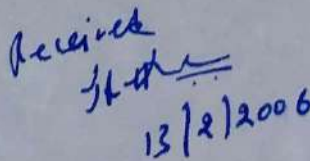 Received
13/2/2006